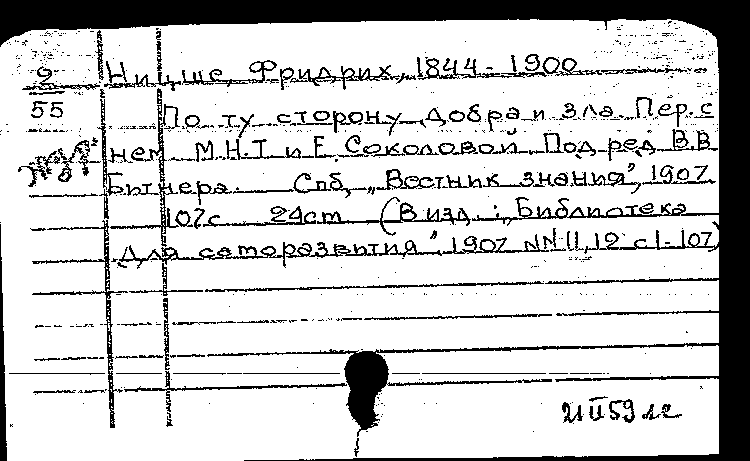 2
55
Ницше, Фридрих, 1844 - 1900
По ту сторону добра и зла. Пер. с
нем. М.Н.Т и Е. Соколовой. Под ред В.В
Битнера. Спб, „Вестник знания”, 1907
107с 24см (В изд.: „Библиотека
для саморазвития”, 1907 NN 11, 12 с 1-107)
21 II 59